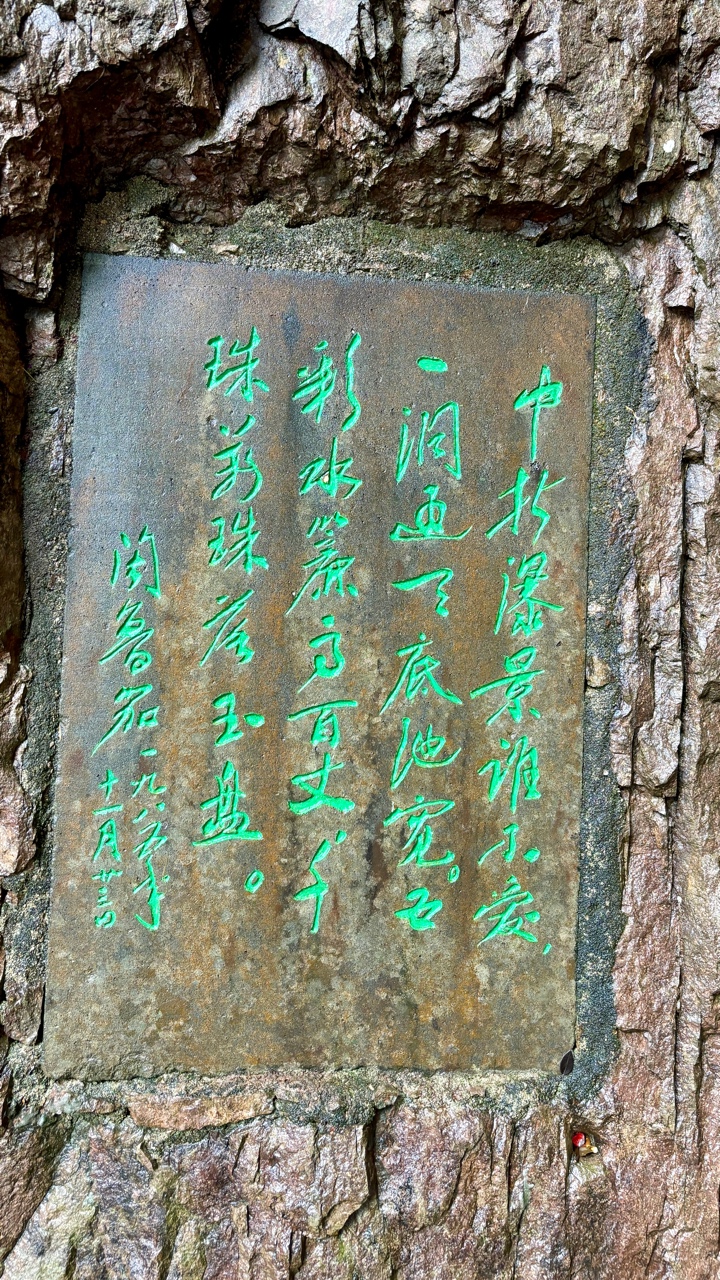 中折瀑景谁不爱,
一洞通天底池宽。五
彩水簾高百丈,千
珠萬珠落玉盘。
一九八五年
十一月廿三日